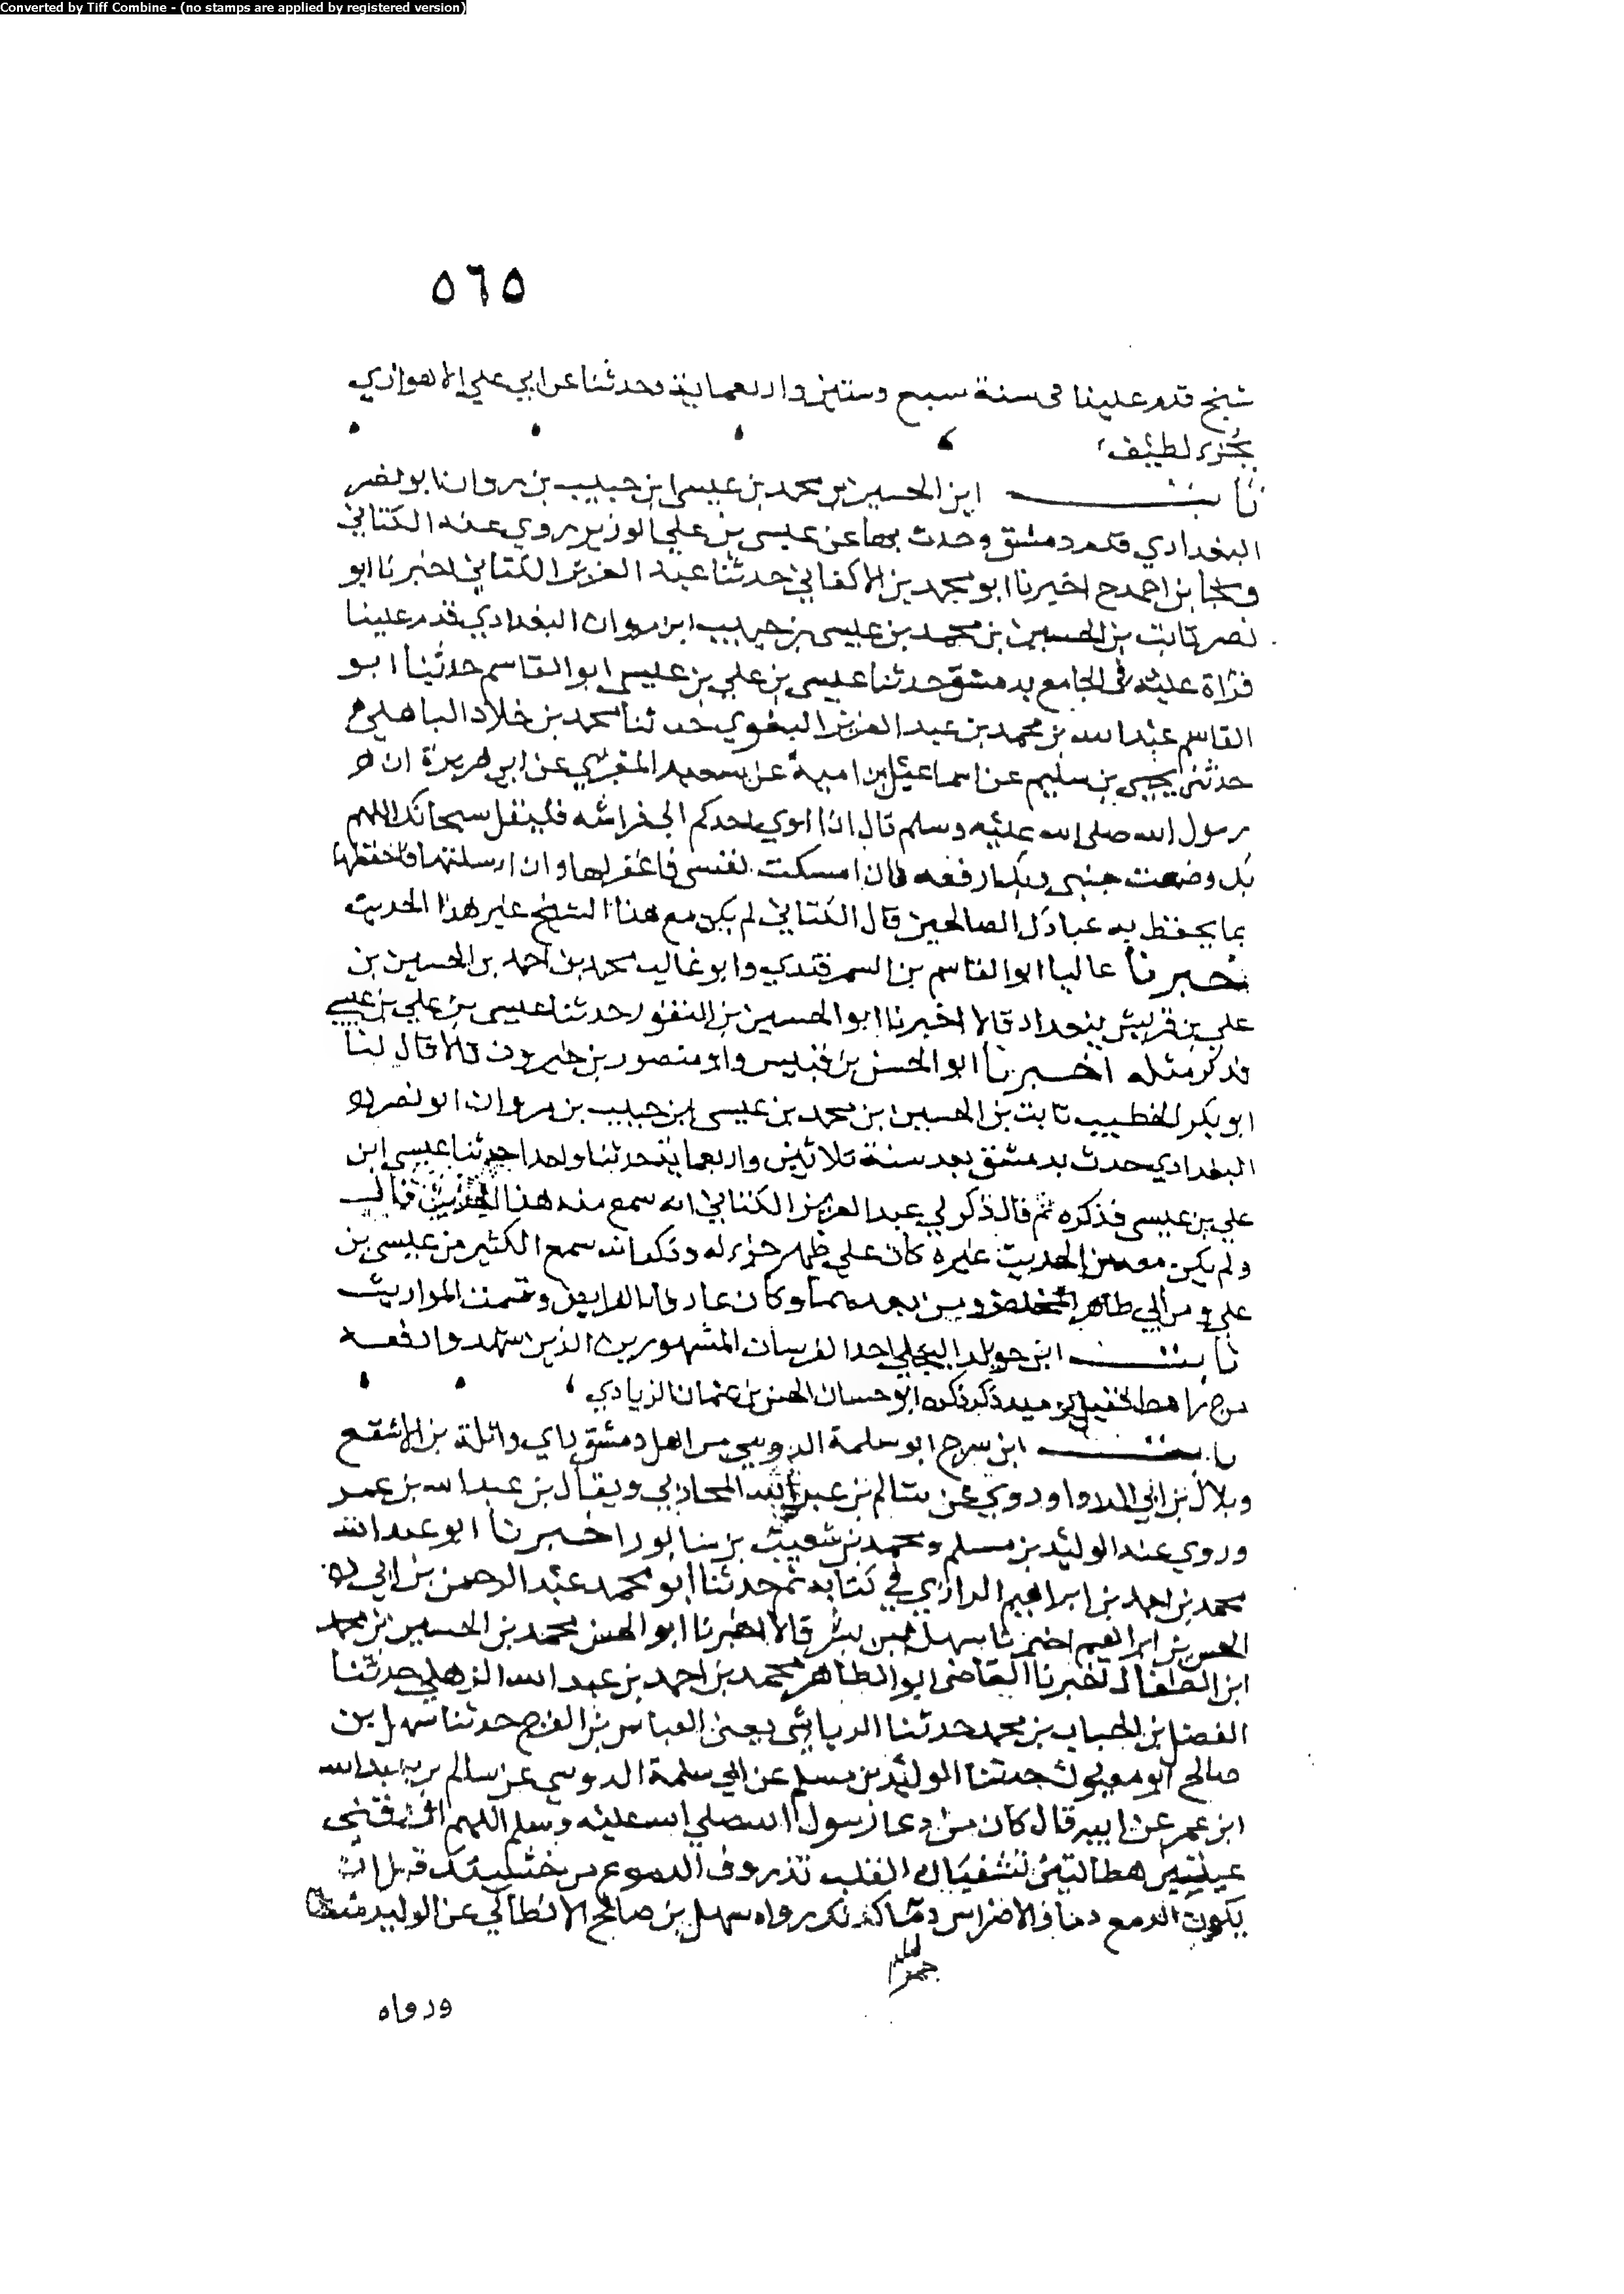 Converted by Tiff Combine - (no stamps are applied by registered version)
٥٦٥
شيخ قدم علينا في سنة سبع وستين واربعماية وحدثنا عن ابي علي الاهوازي
بجزء لطيف
ثابت ابن الحسين بن محمد بن عيسى ابن حبيب بن مروان ابو نصر
البغدادي قدم دمشق وحدث بها عن عيسى بن علي الوزير روي عنه الكتاني
ونجا بن احمد ح اخبرنا ابو محمد بن الاكفاني حدثنا عبد العزيز الكتاني اخبرنا ابو
نصر ثابت بن الحسين بن محمد بن عيسى بن حبيب ابن مروان البغدادي قدم علينا
قراة عليه في الجامع بدمشق حدثنا عيسى بن علي بن عيسى ابو القاسم حدثنا ابو
القاسم عبد الله بن محمد بن عبد العزيز البغوي حدثنا محمد بن خلاد الباهلي
حدثنى يحيى بن سليم عن اسماعيل بن امية عن سعيد المقبري عن ابي هريرة ان
رسول الله صلى الله عليه وسلم قال اذا اوي احدكم الى فراشه فليقل سبحانك اللهم
بك وضعت جنبي وبك ارفعه فان امسكت نفسى فاغفر لها وان ارسلتها فاحفظها
بما يحفظ به عبادك الصالحين قال الكتاني لم يكن مع هذا الشيخ غير هذا الحديث
اخبرنا عاليا ابو القاسم بن السمرقندي وابو غالب محمد بن احمد بن الحسين بن
علي بن قريش ببغداد قالا اخبرنا ابو الحسين بن النقور حدثنا عيسى بن علي بن عيسى
فذكر مثله اخبرنا ابو الحسن بن قبيس وابو منصور بن خيرون قالا قال لنا
ابو بكر الخطيب ثابت بن الحسين بن محمد بن عيسى ابن حبيب بن مروان ابو نصر
البغدادي حدث بدمشق بعد سنة ثلاثين واربعماية حدثنا واحدا حدثنا عيسى ابن
علي بن عيسى فذكره ثم قال ذكر لي عبد العزيز الكتاني انه سمع منه هذا الحديث قال
ولم يكن معه من الحديث غيره كان علي ظهر جزء له وذكر انه سمع الكثير من عيسى بن
علي ومن ابي طاهر المخلص ومن بعدهما وكان عارفا بالفرايض وقسمت المواريث
ثابت ابن خويلد البجلي احد الفرسان المشهورين الذين شهدوا وقعة
مرج راهط ذكره ابو حسان الحسن بن عثمان الزيادي
ثابت ابن سرج ابو سلمة الدوسي من اهل دمشق راي واثلة بن الاسقع
وبلال بن ابي الدرداء وروي عن سالم بن عبد الله المحاربي ويقال بن عبد الله بن عمر
وروي عنه الوليد بن مسلم ومحمد بن شعيب بن شابور اخبرنا ابو عبد الله
محمد بن احمد بن ابراهيم الرازي في كتابه ثم حدثنا ابو محمد عبد الرحمن بن ابي
الحسن بن ابراهيم اخبرنا سهل بن بشر قالا اخبرنا ابو الحسن محمد بن الحسين بن محمد
ابن الطفال اخبرنا القاضى ابو الطاهر محمد بن احمد بن عبد الله الذهلي حدثنا
الفضل بن الحباب بن محمد حدثنا الرياشي يعني العباس بن الفرج حدثنا سهل بن
صالح ابو معيوف حدثنا الوليد بن مسلم عن ابي سلمة الدوسي عن سالم بن عبد الله
ابن عمر عن ابيه قال كان من دعا رسول الله صلى الله عليه وسلم اللهم ارزقني
عينين هطالتين تشفيان القلب تذروف الدموع من خشيتك قبل ان
يكون الدمع دما والاضراس رواه سهل بن صالح الانطاكي عن الوليد
ورواه